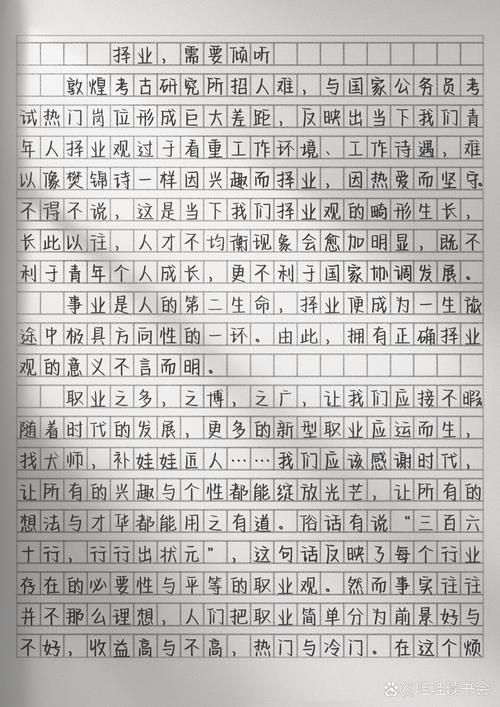 择业，需要倾听
敦煌考古研究所招人难，与国家公务员考
试热门岗位形成巨大差距，反映出当下我们青
年人择业观过于看重工作环境、工作待遇，难
以像樊锦诗一样因兴趣而择业，因热爱而坚守。
不得不说，这是当下我们择业观的畸形生长，
长此以往，人才不均衡现象会愈加明显，既不
利于青年个人成长，更不利于国家协调发展。
事业是人的第二生命，择业便成为一生旅
途中极具方向性的一环。由此，拥有正确择业
观的意义不言而明。
职业之多，之博，之广，让我们应接不暇
随着时代的发展，更多的新型职业应运而生，
找犬师，补娃娃匠人……我们应该感谢时代，
让所有的兴趣与个性都能绽放光芒，让所有的
想法与才华都能用之有道。俗话有说“三百六
十行，行行出状元”，这句话反映了每个行业
存在的必要性与平等的职业观。然而事实往往
并不那么理想，人们把职业简单分为前景好与
不好，收益高与不高，热门与冷门。在这个烦
哇哇读书会